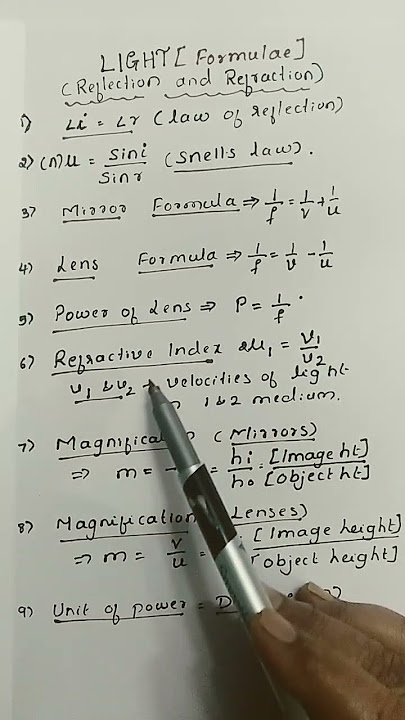 LIGHT [Formulae]
(Reflection and Refraction)
1) ∠i = ∠r (law of reflection)
2) (n)μ = Sini/Sinr (Snells law).
3) Mirror Formula ⇒ 1/f = 1/v + 1/u
4) Lens Formula ⇒ 1/f = 1/v - 1/u
5) Power of Lens ⇒ P = 1/f.
6) Refractive Index 2μ1 = V1/V2
v1 & v2 → velocities of light
1 & 2 medium.
7) (Mirrors)
⇒ m = - = hi/ho = [Image ht]/[Object ht]
8) Magnification Lenses)
⇒ m = v/u = [Image height]/[object height]
9) Unit of power = D